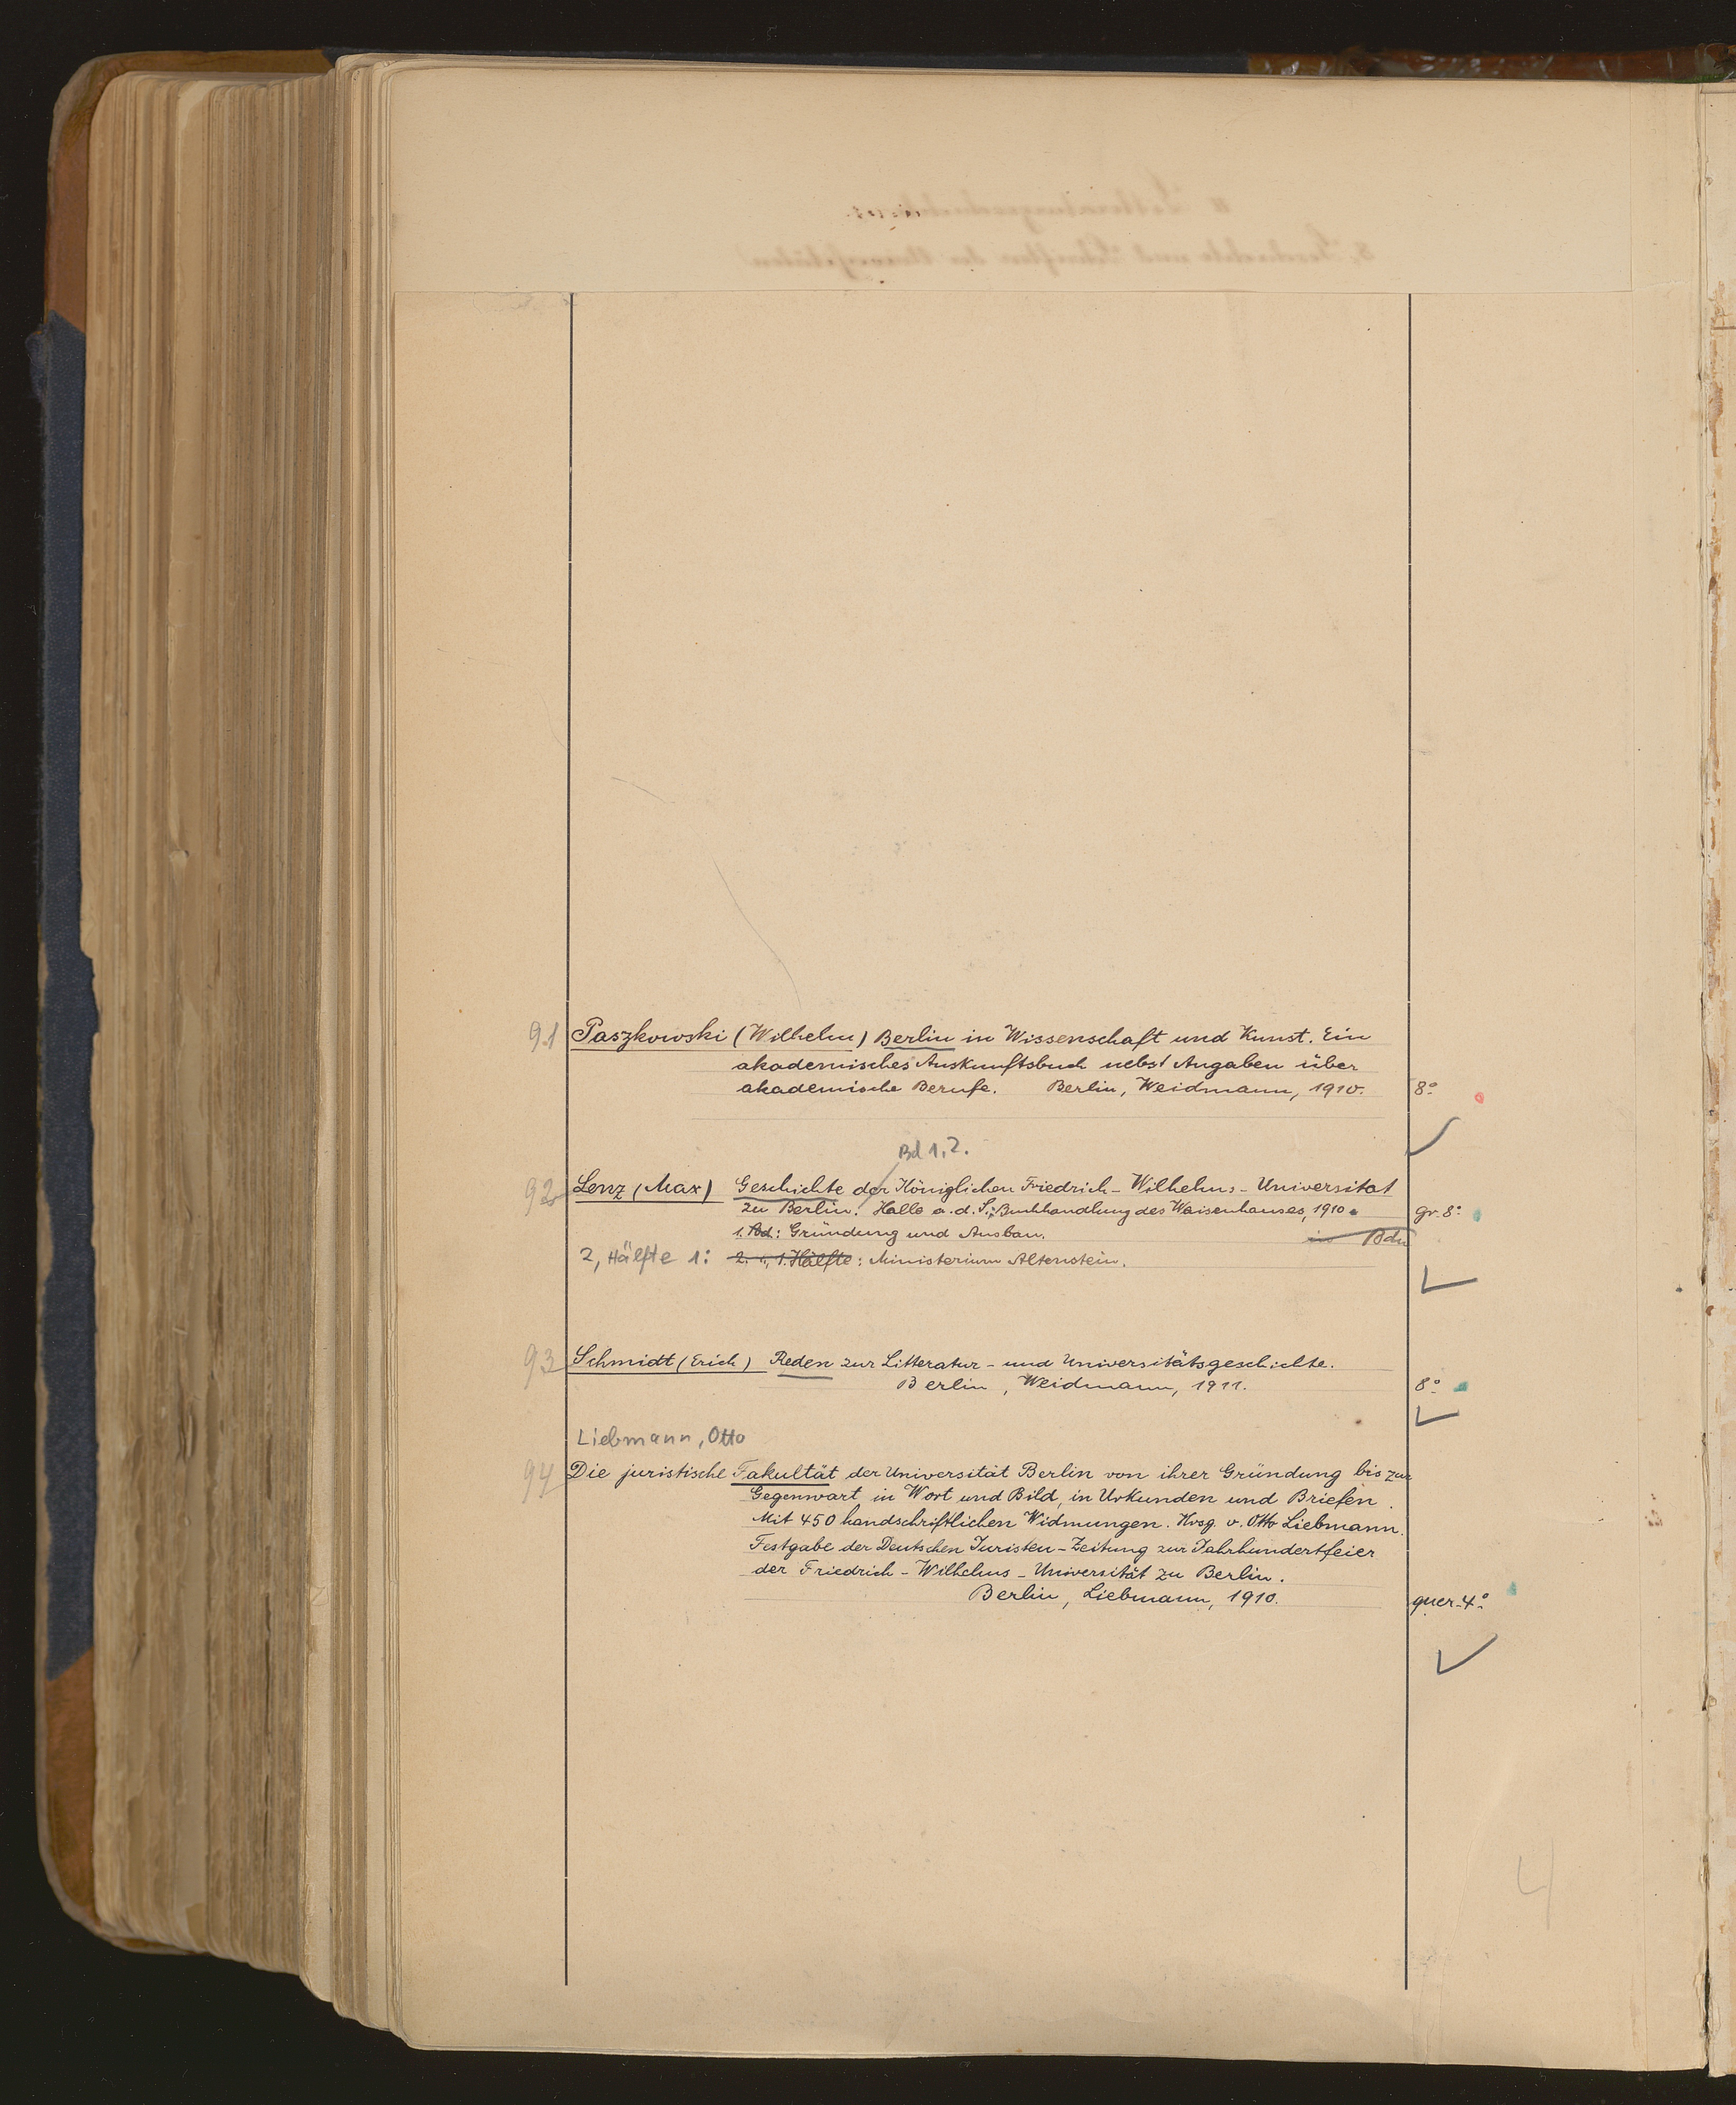 91 Paszkowski (Wilhelm) Berlin in Wissenschaft und Kunst. Ein
akademisches Auskunftsbuch nebst Angaben über
akademische Berufe. Berlin, Weidmann, 1910. 8°
Bd 1,2.
92 Lenz (Max) Geschichte der Königlichen Friedrich-Wilhelms-Universitat
zu Berlin. Halle a.d.S.: Buchhandlung des Waisenhauses, 1910. gr. 8°
1. Bd.: Gründung und Ausbau. in Bdn
2, Hälfte 1: 2. , 1. Hälfte: Ministerium Altenstein.
93 Schmidt (Erich) Reden zur Litteratur- und Universitätsgeschichte.
Berlin, Weidmann, 1911. 8°
Liebmann, Otto
94 Die juristische Fakultät der Universität Berlin von ihrer Gründung bis zur
Gegenwart in Wort und Bild, in Urkunden und Briefen.
Mit 450 handschriftlichen Widmungen. Hrsg. v. Otto Liebmann.
Festgabe der Deutschen Juristen-Zeitung zur Jahrhundertfeier
der Friedrich-Wilhelms-Universität zu Berlin.
Berlin, Liebmann, 1910. quer-4°
4